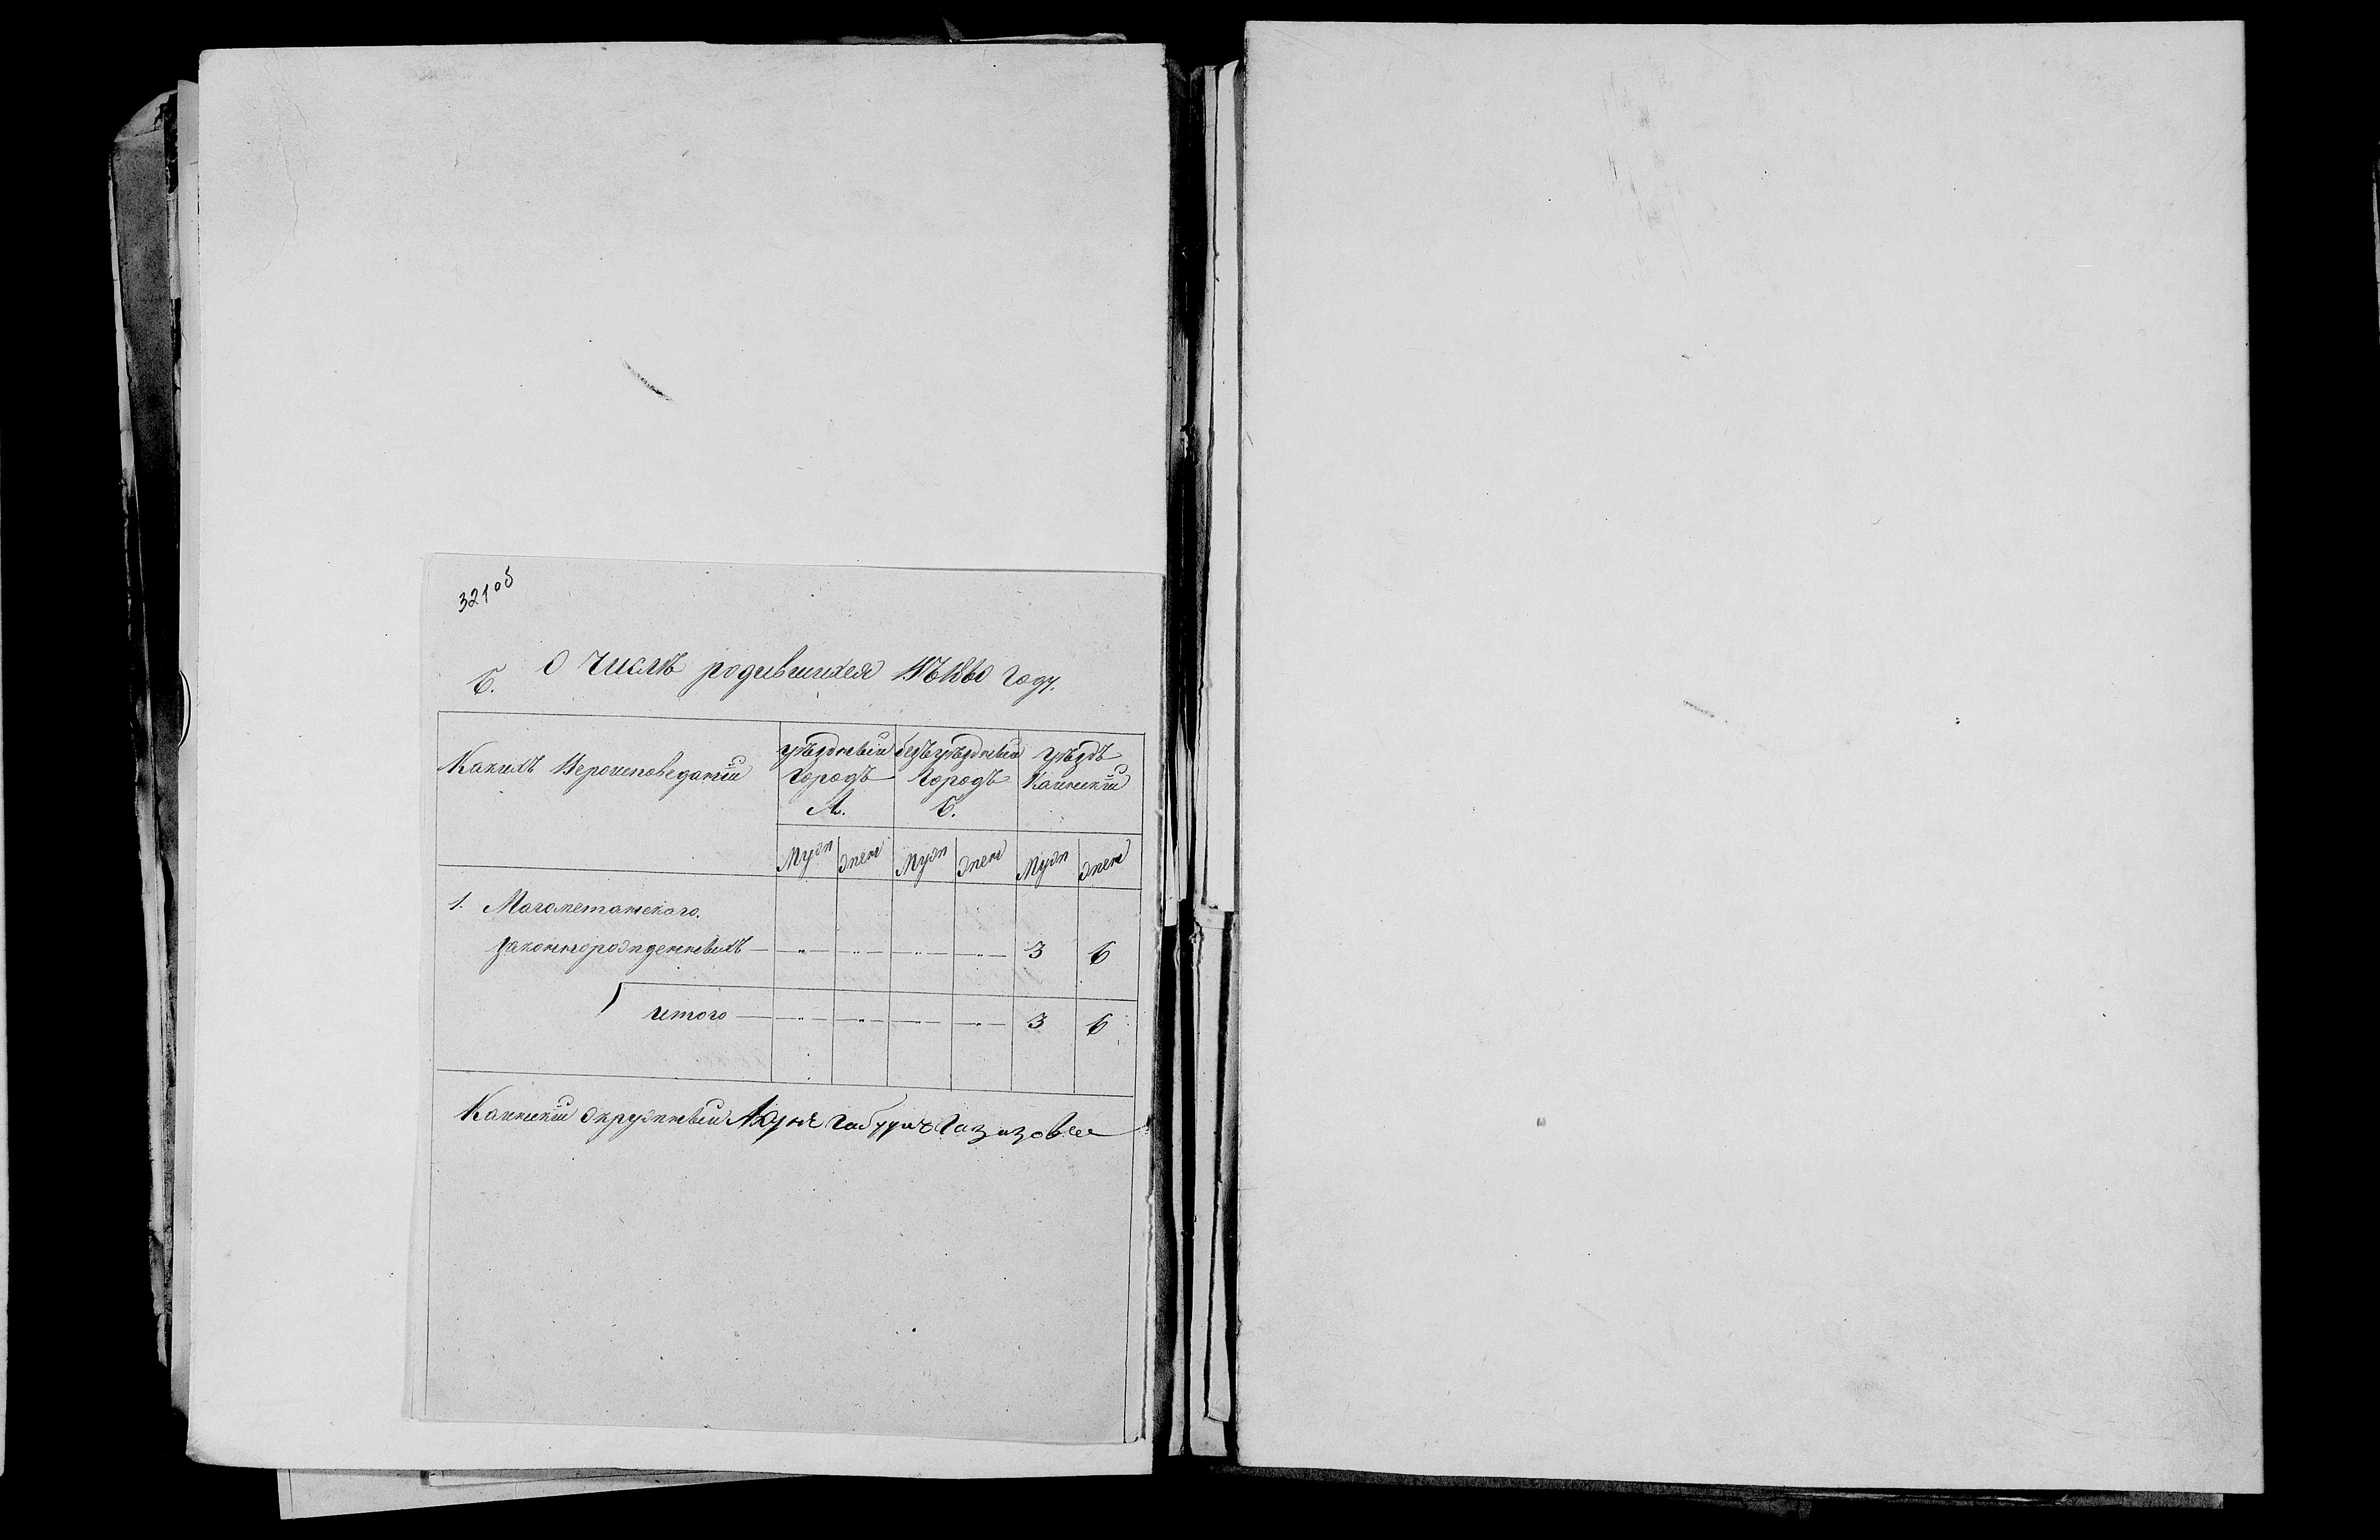 321об
Б. О числѣ родившихся въ 1860 году.
Какихъ Вероисповеданій
уѣздный Городъ А.
безъуѣздный Городъ Б.
уѣздъ Каинскій
Муж Жен Муж Жен Муж Жен
1. Магометанскаго.
законнорожденныхъ — „ — „ — „ — „ — 3 6
итого — „ — „ — „ — „ — 3 6
Каинскій Окружный Ахунъ Газизовъ